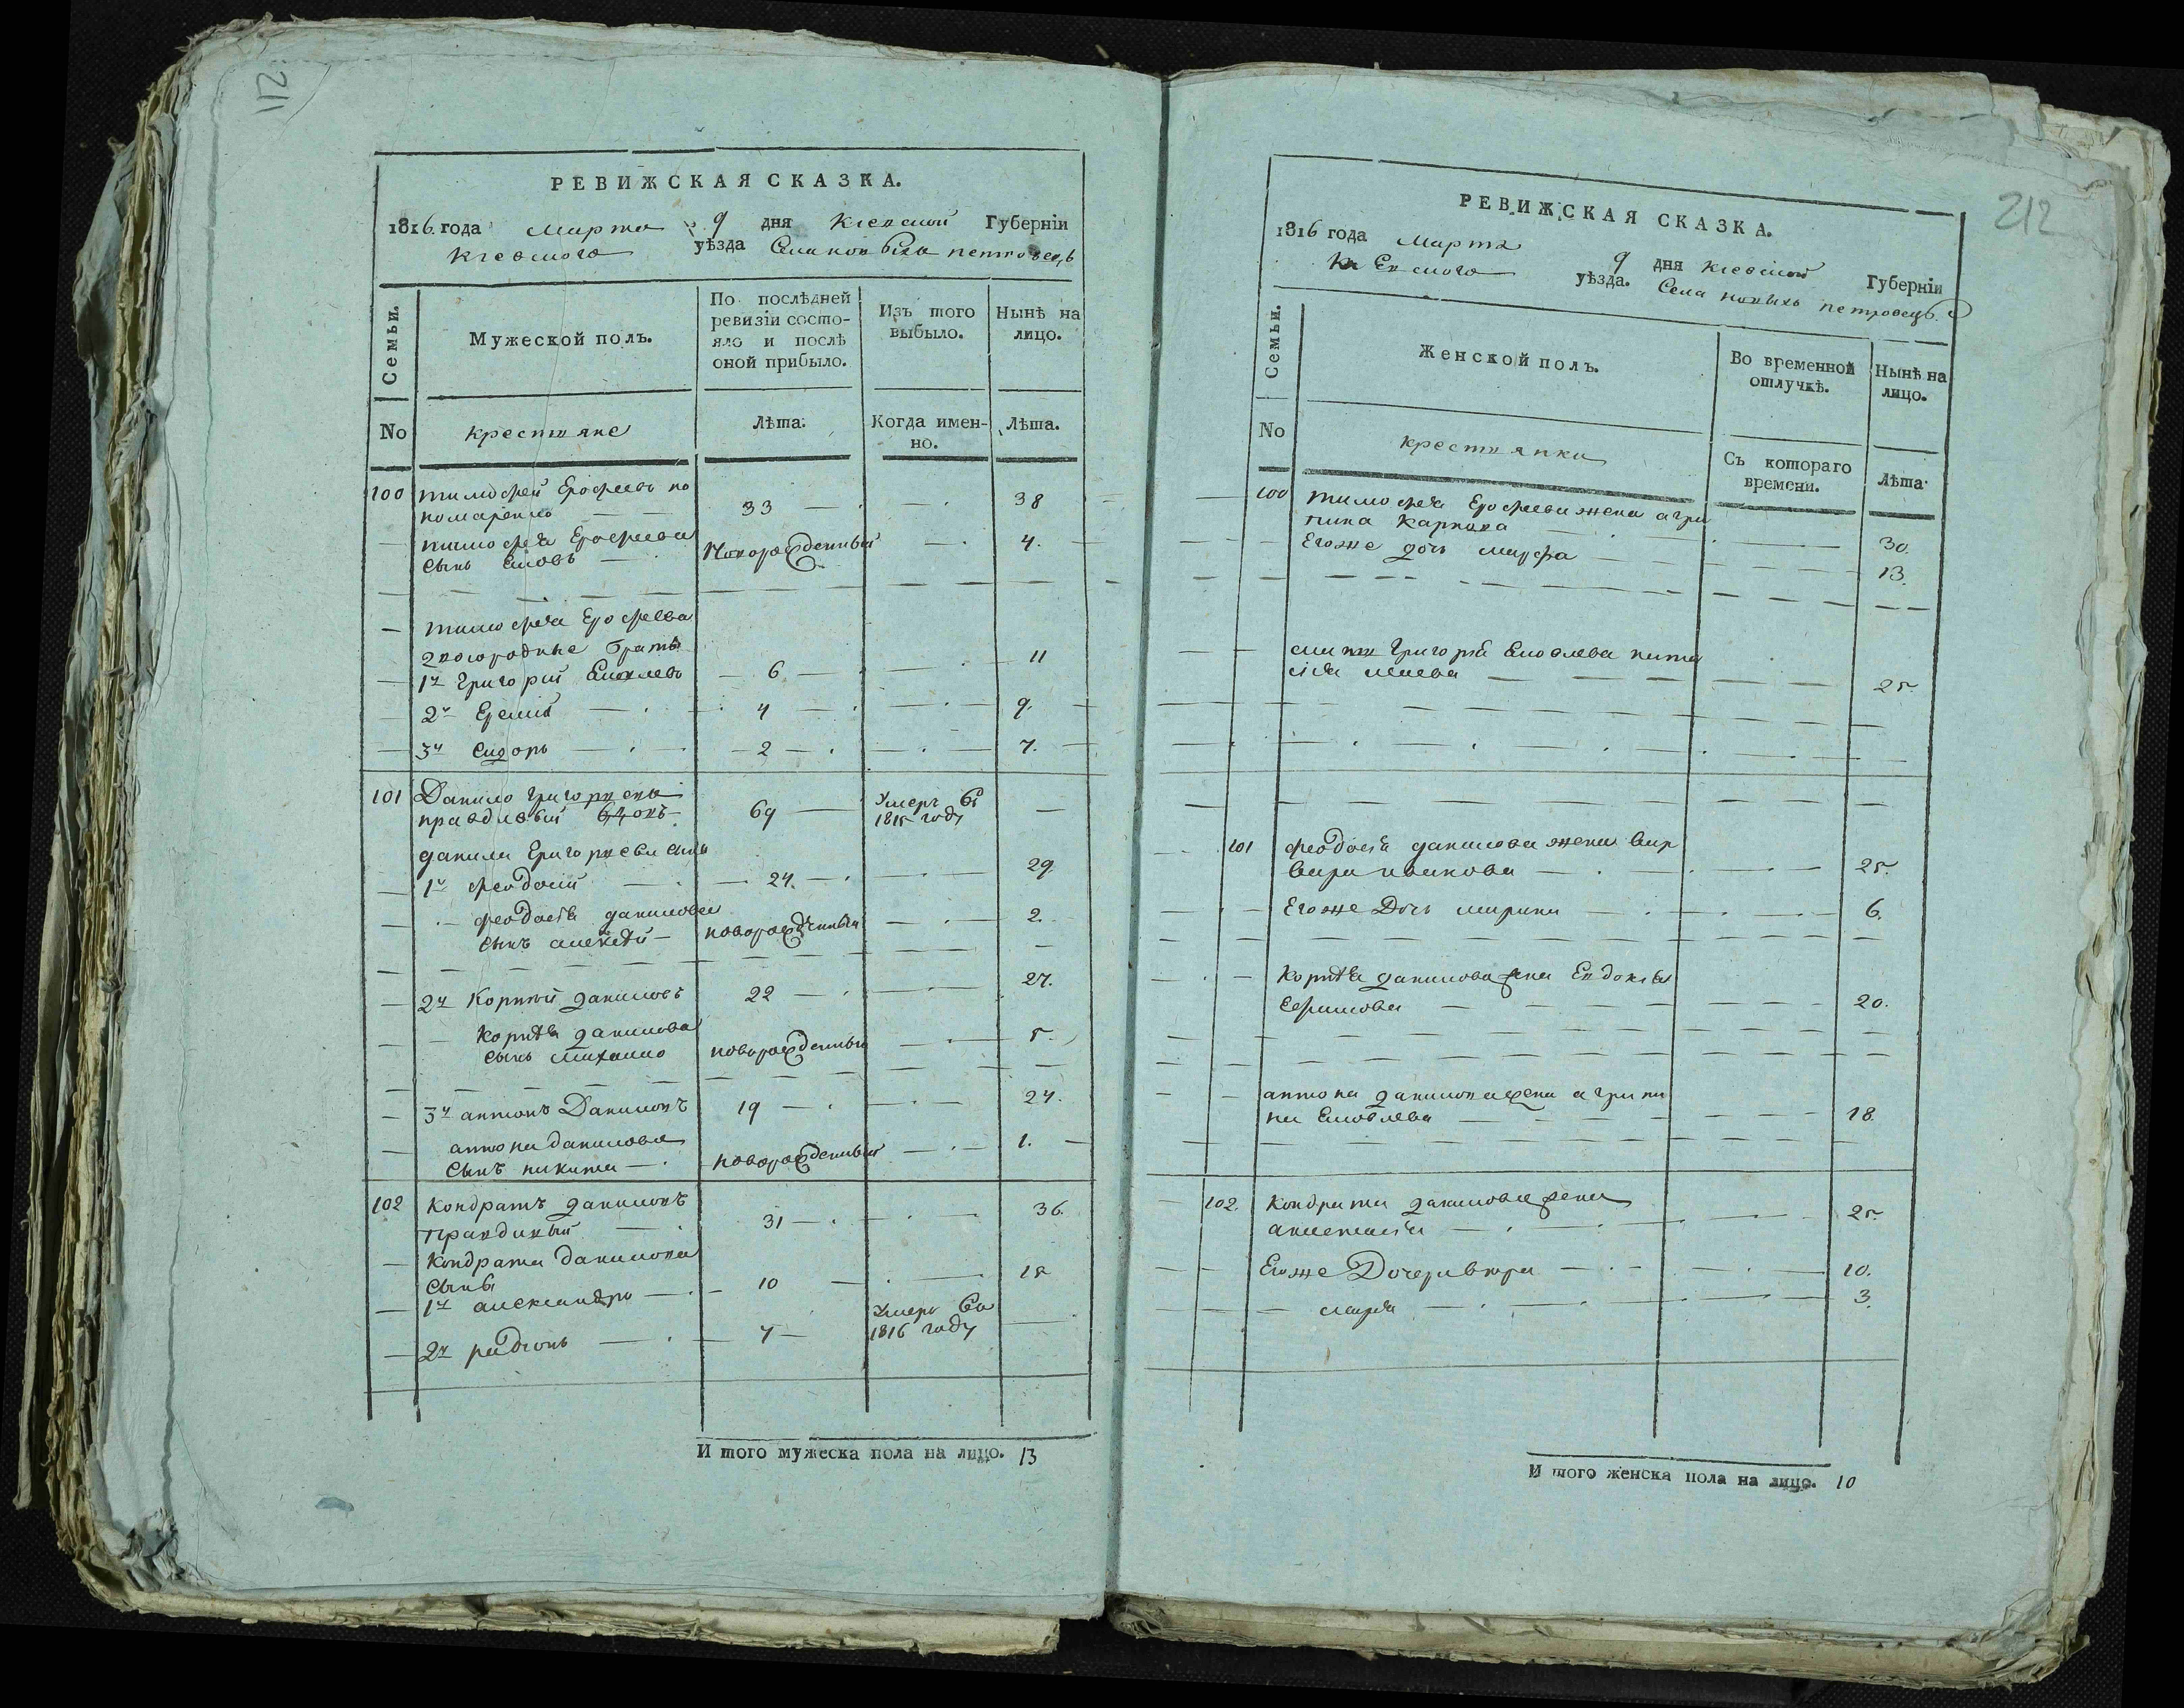 211
РЕВИЖСКАЯ СКАЗКА.
1816 года Марта 9 дня Кіевской Губерніи
Кіевского уѣзда Села новыхъ петровецъ
Семьи.
Мужеской полъ.
По послѣдней
ревизіи состо-
яло и послѣ
оной прибыло.
Изъ того
выбыло.
Нынѣ на
лицо.
No
крестьяне
Лѣта.
Когда имен-
но.
Лѣта.
100 тимофей Ерофеевъ по
номаренко 33 38
тимофея Ерофеева
сынъ новорожденный 4.
тимофея Ерофеева
2пюродные братья
1й Григорий Яковлевъ 6 11
2й Еремій 4 9.
3й Сидоръ 2 7.
101 Данило Григорьевъ
правдивый 69 Умеръ въ
1815 году
данила Григорьева сыны
1й феодосій 24. 29
феодосія данилова
сынъ алексѣй новорожденный 2.
2й Корнѣй даниловъ 22 27.
Корнѣя данилова
сынъ михайло новорожденный 5.
3й антонъ Даниловъ 19 24.
антона данилова
Сынъ никита новорожденный 1.
102 Кондратъ даниловъ
правдивый 31 36.
Кондрата данилова
сыны
1й александръ 10 15
2й радіонъ 4 Умеръ въ
1816 году
И того мужеска пола на лицо. 13
212
РЕВИЖСКАЯ СКАЗКА.
1816 года Марта 9 дня Кіевской Губерніи
Кіевского уѣзда. Села новыхъ петровецъ.
Семьи.
Женской полъ.
Во временной
отлучкѣ.
Нынѣ на
лицо.
No
крестьянки
Съ котораго
времени.
Лѣта.
100 тимофея Ерофеева жена агри
пина Карпова 30.
Егоже дочь марфа 13.
Григорія Яковлева ната
лія 25.
101 феодосія данилова жена вар
вара 25.
Егоже Дочь марина 6.
Корнѣя данилова жена Евдокія
Ефимова 20.
антона данилова жена агрипи
на Яковлева 18.
102. Кондрата данилова жена
анастасія 25.
Егоже Дочери 10.
марія 3.
И того женска пола на лицо. 10